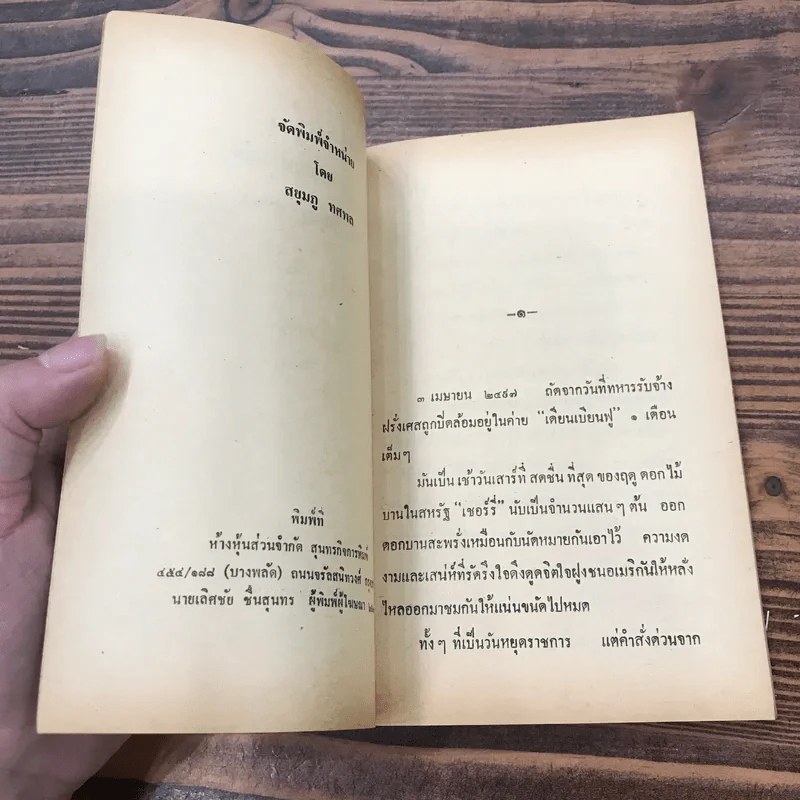 จัดพิมพ์จำหน่าย
โดย
สยุมภู ทศพล
พิมพ์ที่
ห้างหุ้นส่วนจำกัด สุนทรกิจการพิมพ์
๔๕๔/๑๘๘ (บางพลัด) ถนนจรัลสนิทวงศ์
นายเลิศชัย ชื่นสุนทร ผู้พิมพ์ผู้โฆษณา
—๑—
๓ เมษายน ๒๔๙๗ ถัดจากวันที่ทหารรับจ้าง
ฝรั่งเศสถูกปิดล้อมอยู่ในค่าย “เดียนเบียนฟู” ๑ เดือน
เต็มๆ
มันเป็น เช้าวันเสาร์ที่ สดชื่น ที่สุด ของฤดู ดอกไม้
บานในสหรัฐ “เชอร์รี่” นับเป็นจำนวนแสน ๆ ต้น ออก
ดอกบานสะพรั่งเหมือนกับนัดหมายกันเอาไว้ ความงด
งามและเสน่ห์ที่รัดรึงใจดึงดูดจิตใจฝูงชนอเมริกันให้หลั่ง
ไหลออกมาชมกันให้แน่นขนัดไปหมด
ทั้งๆ ที่เป็นวันหยุดราชการ แต่คำสั่งด่วนจาก